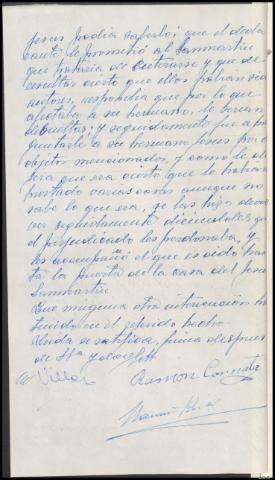 Jesus podia saberlo; que el decla
rante le prometió al Sanmartin
que trataria de enterarse y que de
resultar cierto que ellos fueran
autores, respondia que por lo que
afectaba a su hermano, le serian
devueltos; y seguidamente fue a pre
guntarle a su hermano Jesus por
objetos mencionados, y como le di
jera que era cierto que le habian
varias cosas aunque no
sabe lo que era, se las hizo devol
ver seguidamente diciendoles que
el perjudicado los perdonaba, y
les acompañó el que es oido has
ta la puerta de la casa del
Sanmartin
Que ninguna otra intervencion ha
tenido en el referido hecho.
Leida se ratifica, firma despues
de Sª y doy fé
Villar
Ramon